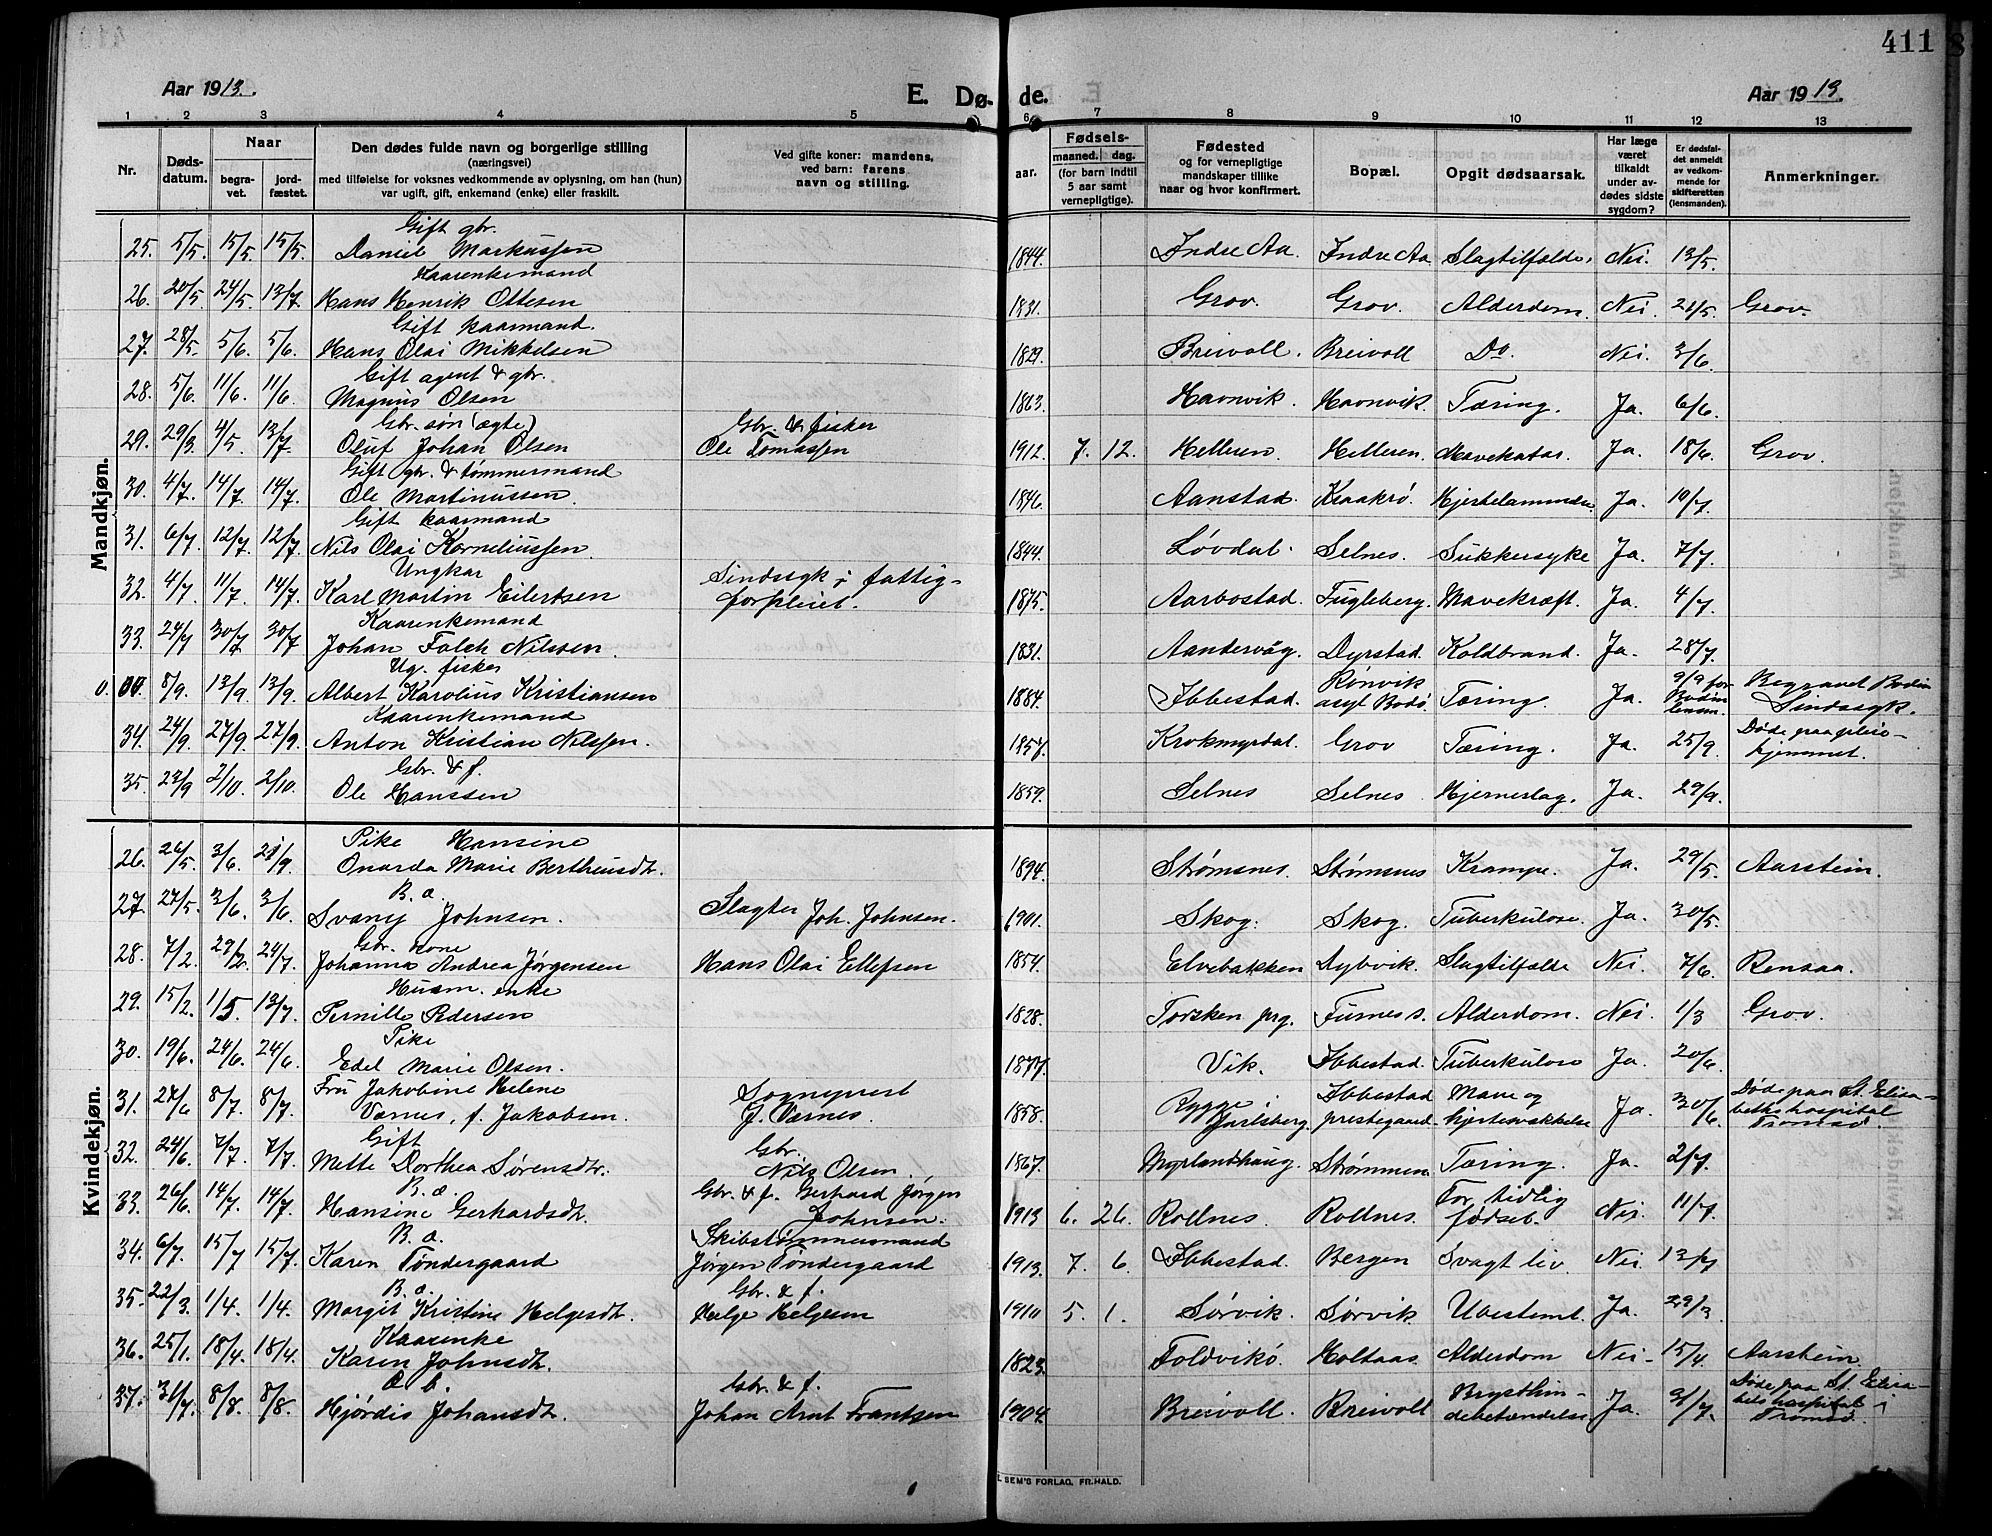 411
Aar 1913. E. Dø- de. Aar 1913.
1 2 3 4 5 6 7 8 9 10 11 12 13
Nr.
Døds-
datum.
Naar
begra-
vet.
jord-
fæstet.
Den dødes fulde navn og borgerlige stilling
(næringsvei)
med tilføielse for voksnes vedkommende av oplysning, om han (hun)
var ugift, gift, enkemand (enke) eller fraskilt.
Ved gifte koner: mandens,
ved barn: farens
navn og stilling.
Fødsels-
aar. maaned. dag.
(for barn indtil
5 aar samt
vernepligtige).
Fødested
og for vernepligtige
mandskaper tillike
naar og hvor konfirmert.
Bopæl.
Opgit dødsaarsak.
Har læge
været
tilkaldt
under av-
dødes sidste
sygdom?
Er dødsfal-
det anmeldt
av vedkom-
mende for
skifteretten
(lensmanden).
Anmerkninger.
Mandkjøn.
Gift gbr.
25. 5/5. 15/5 15/5 Daniel Markussen 1844. Indre Aa. Indre Aa Slagtilfælde. Nei. 13/5.
Kaarenkemand
26. 20/5 24/5 13/7. Hans Henrik Ottesen 1831. Grov. Grov. Alderdom. Nei. 21/5. Grov.
Gift kaarmand.
27. 28/5. 5/6. 5/6. Hans Olai Mikkelsen 1829. Breivoll. Breivoll Do. Nei. 3/6.
Gift agent & gbr.
28. 5/6. 11/6. 11/6. Magnus Olsen 1863. Havnvik. Havnvik. Tæring. Ja. 6/6.
Gbr. søn (ægte) Gbr. & fisker
29. 29/3 4/5. 13/7. Oluf Johan Olsen Ole Tomassen 1912. 7. 12. Helleren. Helleren. Mavekatar. Ja. 18/6. Grov.
Gift gbr. & tømmermand
30. 4/7. 14/7 14/7. Ole Martinussen. 1846. Aanstad. Kraakrø. Ja. 10/7.
Gift kaarmand
31. 6/7. 12/7. 12/7. Nils Olai Korneliussen. 1844. Løvdal. Selnes. Sukkersyke Ja. 7/7.
Ungkar Sindssyk i fattig-
32. 4/7. 11/7. 14/7. Karl Martin Eilertsen forpleiet. 1875. Aarbostad. Fugleberg. Mavekræft. Ja. 4/7.
Kaarenkemand
33. 24/7 30/7 30/7 Johan Falch Nilssen. 1831. Aandervåg. Dyrstad. Koldbrand. Ja. 28/7.
Ug. fisker Rønvik 9/9 for Begravet Bodin
0. 8/9. 13/9. 13/9. Albert Karolius Kristiansen 1884. Ibbestad. asyl Bodø. Tæring. Ja. Bodin lensm. Sindssyk.
Kaarenkemand Døde paa pleie-
34. 24/9. 27/9. 27/9. Anton Kristian Nilssen. 1857. Krokmyrdal. Grov Tæring. Ja. 25/9. hjemmet.
Gbr. & f.
35. 23/9 2/10. 2/10. Ole Hanssen 1859. Selnes Selnes. Hjerneslag. Ja. 29/9.
Kvindekjøn.
Pike Hansine
26. 26/5. 3/6. 21/9. Onarda Marie Bertheusdt. 1894. Strømsnes. Strømsnes Krampe. Ja. 29/5. Aarstein.
B. a.
27. 27/5. 3/6. 3/6. Svanij Johnsen. Slagter Joh. Johnsen. 1901. Skog. Skog. Tuberkulose. Ja. 30/5.
Gbr. kone
28. 7/2. 24/7. Johanna Andrea Jørgensen Hans Olai Ellefsen 1854. Elvebakken Dybvik. Slagtilfælde Nei. 7/6. Rensaa.
Husm. enke
29. 15/2. 1/5. 13/7 Pernille Pedersen 1828. Torsken prg. Furnes s. Alderdom. Nei. 1/3 Grov.
Pike
30. 19/6. 24/6. 24/6 Edel Marie Olsen. 1877. Vik. Ibbestad. Tuberkulose Ja. 20/6
Fru Jakobine Helene Sogneprest Ibbestad Mave og Døde paa St. Elisa-
31. 27/6 8/7. 8/7. Værnes, f. Jakobsen. J. Værnes. 1858. Rygge i Jarlsberg. prestegaard. hjertesvækkelse Ja. 30/6 bethshospital Tromsø.
Gift Gbr.
32. 24/6. 7/7. 7/7. Mette Dorthea Sørensdt. Nils Olsen. 1867. Myrlandhaug. Strømmen Tæring. Ja. 2/7.
B. a. Gbr. & f. Gerhard Jørgen For tidlig
33. 26/6. 14/7. 14/7. Hansine Gerhardsdt. Johnsen. 1913 6. 26. Rollnes. Rollnes. fødsel. Nei. 11/7.
B. a. Skibstømmermand
34. 6/7. 15/7 15/7. Karen Tøndergaard Jørgen Tøndergaard 1913. 7. 6. Ibbestad. Bergen Svagt liv. Nei. 13/7
B. a. Gbr. & f.
35. 22/3. 1/4. 1/4. Margit Kristine Helgesdt. Helge Helgesen 1910 5. 1. Sørvik. Sørvik Ubestemt. Ja. 29/3
Kaarenke
36. 25/1. 18/4. 18/4. Karen Johnsdt. 1823. Foldvikø. Holtaas. Alderdom Nei. 15/4. Aarstein.
Gbr. & f. Brysthin- Døde paa St. Elisa-
37. 31/7. 8/8. 8/8. Hjørdis Johansdt. Johan Arnt Frantsen 1904. Breivoll. Breivoll debetændelse Ja. 31/7. bets hospital i Tromsø.
SEM'S FORLAG, FR.HALD.